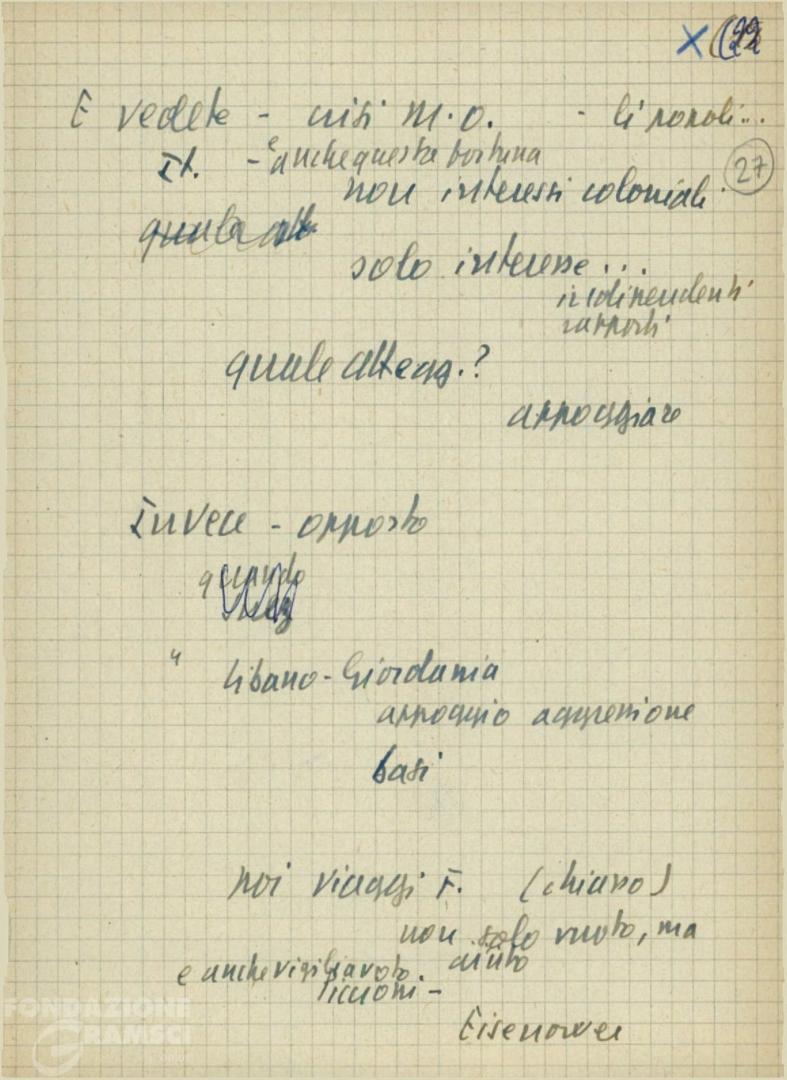 X (22
E vedete - crisi M.O. - li popoli...
It. - è anche questa fortuna
27
non interessi coloniali
quale att.
solo interesse...
indipendenti
rapporti
quale atteg.?
appoggiare
Invece - opposto
quando
Suez
" Libano-Giordania
appoggio aggressione
basi
poi viaggi F. (chiasso)
non solo vuoto, ma
aiuto
e anche vigil. a voto.
Piccioni -
Eisenower
FONDAZIONE
GRAMSCI